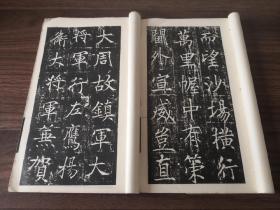 望沙場橫行
萬里中有策
閫外宣威豈直
大周故鎮軍大
將軍行左鷹揚
衛大將軍兼賀